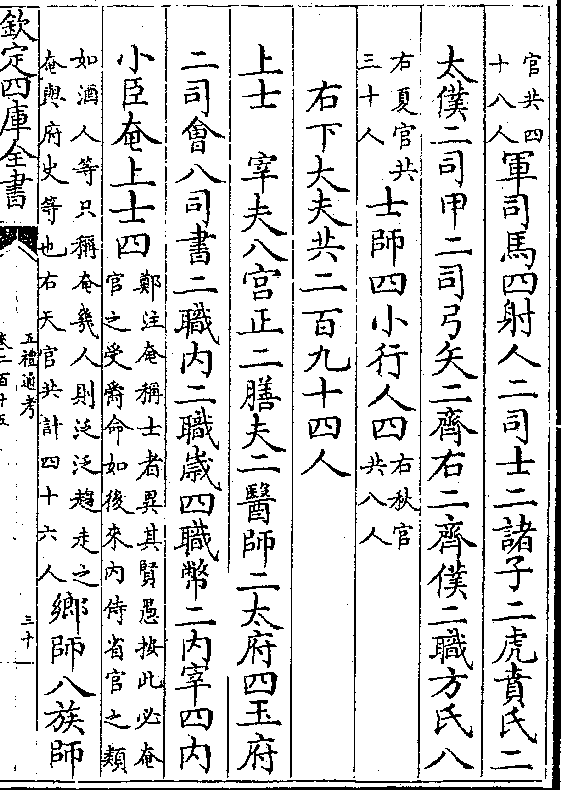 官共四
十八人
軍司馬四射人二司士二諸子二虎賁氏二
太僕二司甲二司弓矢二齊右二齊僕二職方氏八
右夏官共
三十人
士師四小行人四
右秋官
共八人
右下大夫共二百九十四人
上士 宰夫八宫正二膳夫二醫師二太府四玉府
二司會八司書二職内二職歳四職幣二内宰四内
小臣奄上士四
鄭注奄稱士者異其賢愚按此必奄
官之受爵命如後來内侍省官之類
如酒人等只稱奄幾人則泛泛趨走之
奄與府史等也右天官共計四十六人
鄉師八族師
欽定四庫全書
五禮通考
卷二百十五
三十